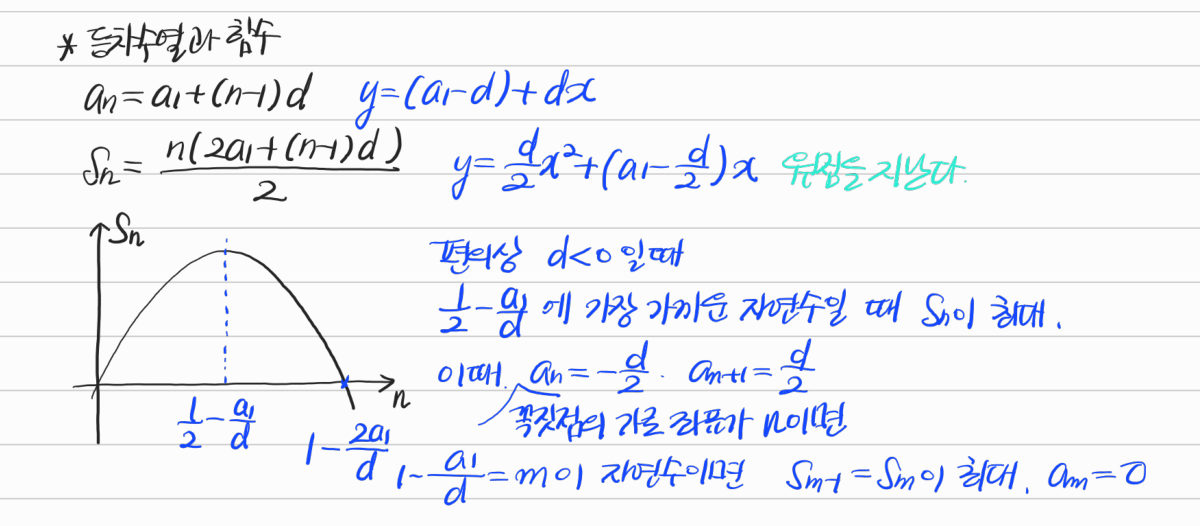 * 등차수열과 함수
aₙ = a₁+(n-1)d  y=(a₁-d)+dx
Sₙ = n(2a₁+(n-1)d)/2  y = d/2 x²+(a₁-d/2)x 원점을 지난다.
Sₙ
편의상 d<0 일때
1/2 - a₁/d 에 가장 가까운 자연수일 때 Sₙ이 최대.
이때. aₙ = -d/2. aₙ₊₁ = d/2
n
꼭짓점의 가로 좌표가 n이면
1/2 - a₁/d
1 - 2a₁/d
1 - a₁/d = m이 자연수이면 Sₘ₋₁ = Sₘ이 최대. aₘ = 0